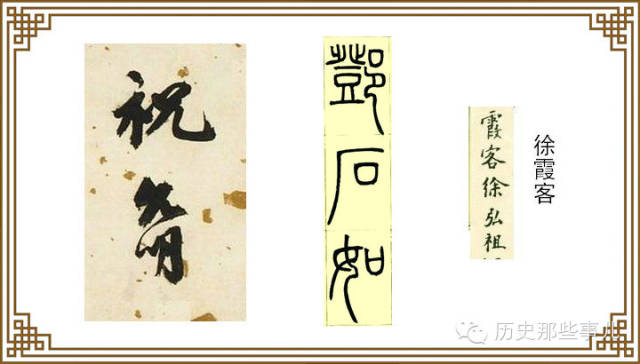 祝允明
鄧石如
霞客徐弘祖
徐霞客
历史那些事儿